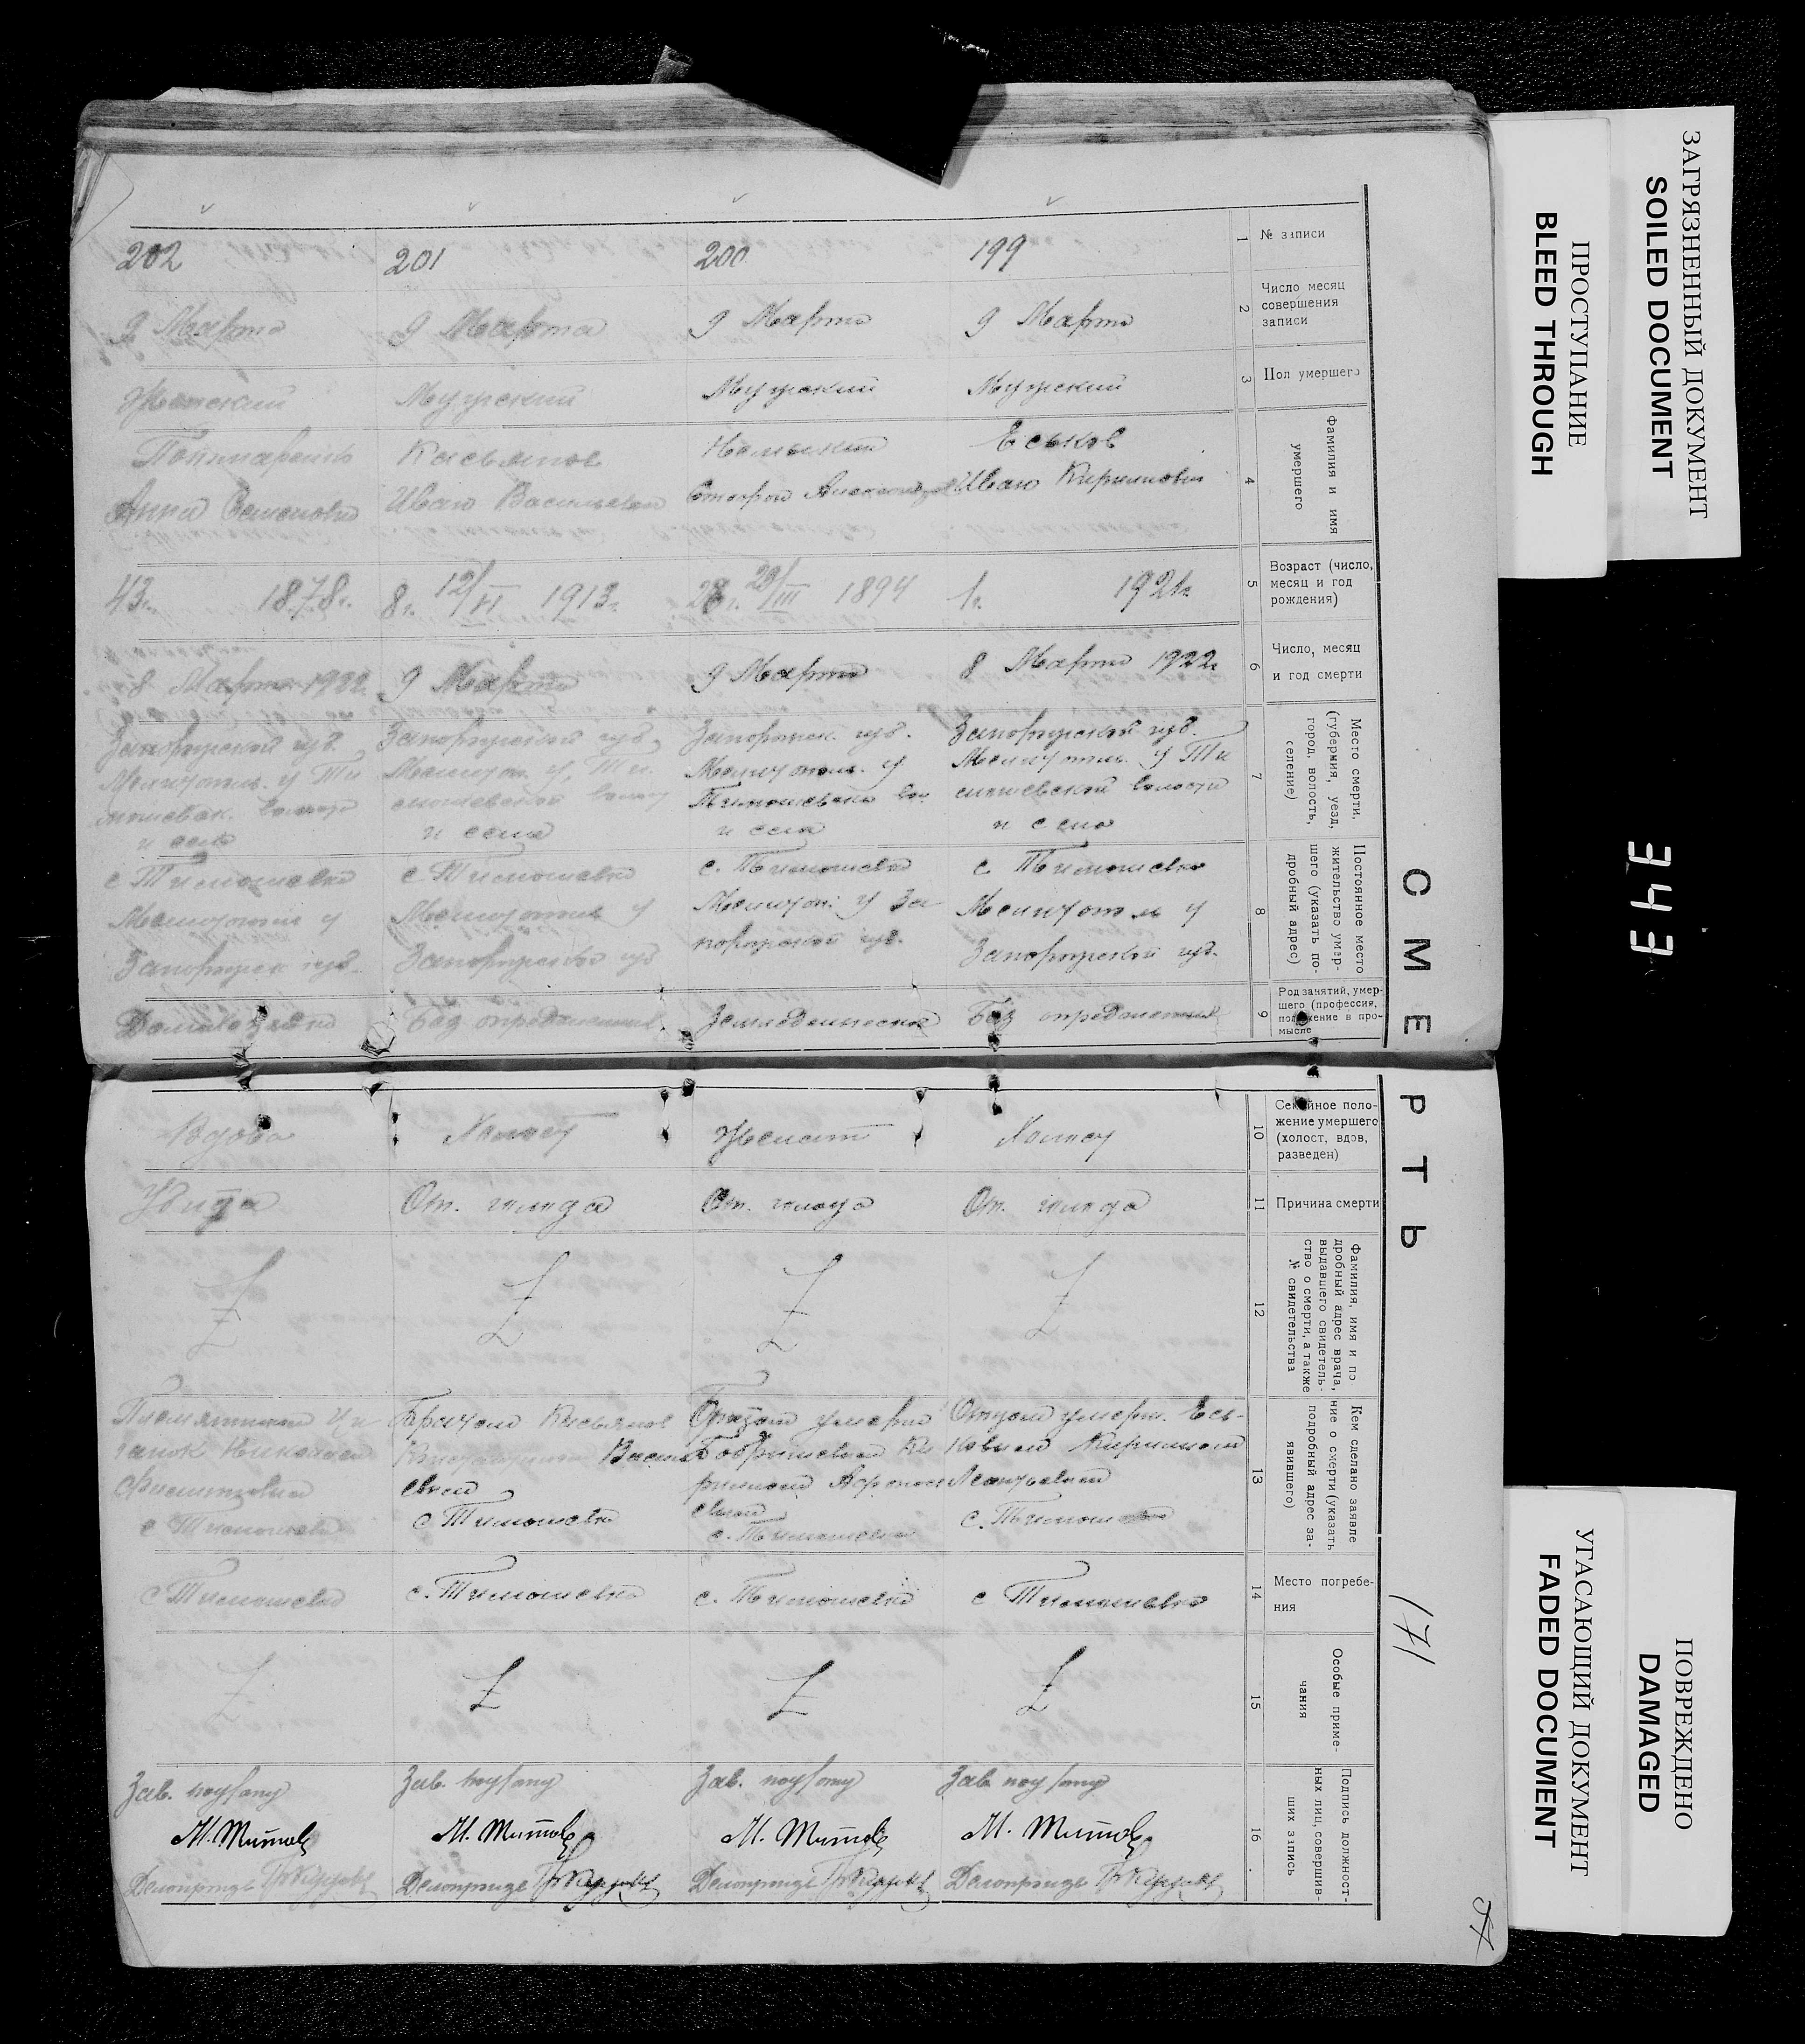 ЗАГРЯЗНЕННЫЙ ДОКУМЕНТ
SOILED DOCUMENT
ПРОСТУПАНИЕ
BLEED THROUGH
343
СМЕРТЬ
171
1 № записи
199
200
201
202
2 Число месяц
совершения
записи
9 Марта
9 Марта
9 Марта
9 Марта
3 Пол умершего
Мужский
Мужский
Мужский
Женский
4 Фамилия и имя
умершего
Еськов
Иван Кирилович
Касьянов
Иван Васильевич
Анна Семеновна
5 Возраст (число,
месяц и год
рождения)
1г. 1921г.
28г. 29/III 1894
8г. 12/VI 1913г.
43г. 1878г.
6 Число, месяц
и год смерти
8 Марта 1922г
9 Марта
9 Марта
8 Марта 1922
7 Место смерти,
(губерния, уезд,
город, волость,
селение)
Запорожской губ.
Мелитополь. у Ти
мошевской волости
и село
Запорожск. губ.
Мелитополь. у
Тимошевско вол
и села
Запорожской губ.
Мелитоп. у. Ти
мошевской волост
и села
Запорожской губ.
Мелитополь. у Ти
мошевск. волости
и село
8 Постоянное место
жительство умер-
шего (указать по-
дробный адрес)
с Тимошевка
Мелитополь у
Запорожской губ.
с. Тимошевка
Мелитоп. у За
порожской губ.
с Тимошевка
Мелитополь у
Запорожской губ
с Тимошевка
Мелитополь у
Запорожск губ.
9 Род занятий, умер-
шего (профессия,
положение в про-
мысле
Без определенных
Земледельческое
Без определенных
10 Семейное поло-
жение умершего
(холост, вдов,
разведен)
Холост
Женат
Холост
Вдова
11 Причина смерти
От. голода
От. голода
От. голода
Убита
12 Фамилия, имя и по
дробный адрес врача,
выдавшего свидетель-
ство о смерти, а также
№ свидетельства
Z
Z
Z
Z
13 Кем сделано заявле
ние о смерти (указать
подробный адрес за-
явившего)
Отцом умерш. Есь-
ковым Кирилом
с. Тимошевка
с. Тимошевка
Касьянов
с Тимошевка
Племянником
Николаем
с Тимошевка
14 Место погребе-
ния
с Тимошевка
с. Тимошевка
с. Тимошевка
с Тимошевка
15 Особые приме-
чания
Z
Z
Z
Z
16 Подпись должност-
ных лиц, совершив-
ших запись
Зав. подотд
М. Титов
Делопроизв
Зав. подотд
М. Титов
Делопроизв
Зав. подотд
М. Титов
Делопроизв
Зав. подотд
М. Титов
Делопроизв
УГАСАЮЩИЙ ДОКУМЕНТ
FADED DOCUMENT
ПОВРЕЖДЕНО
DAMAGED